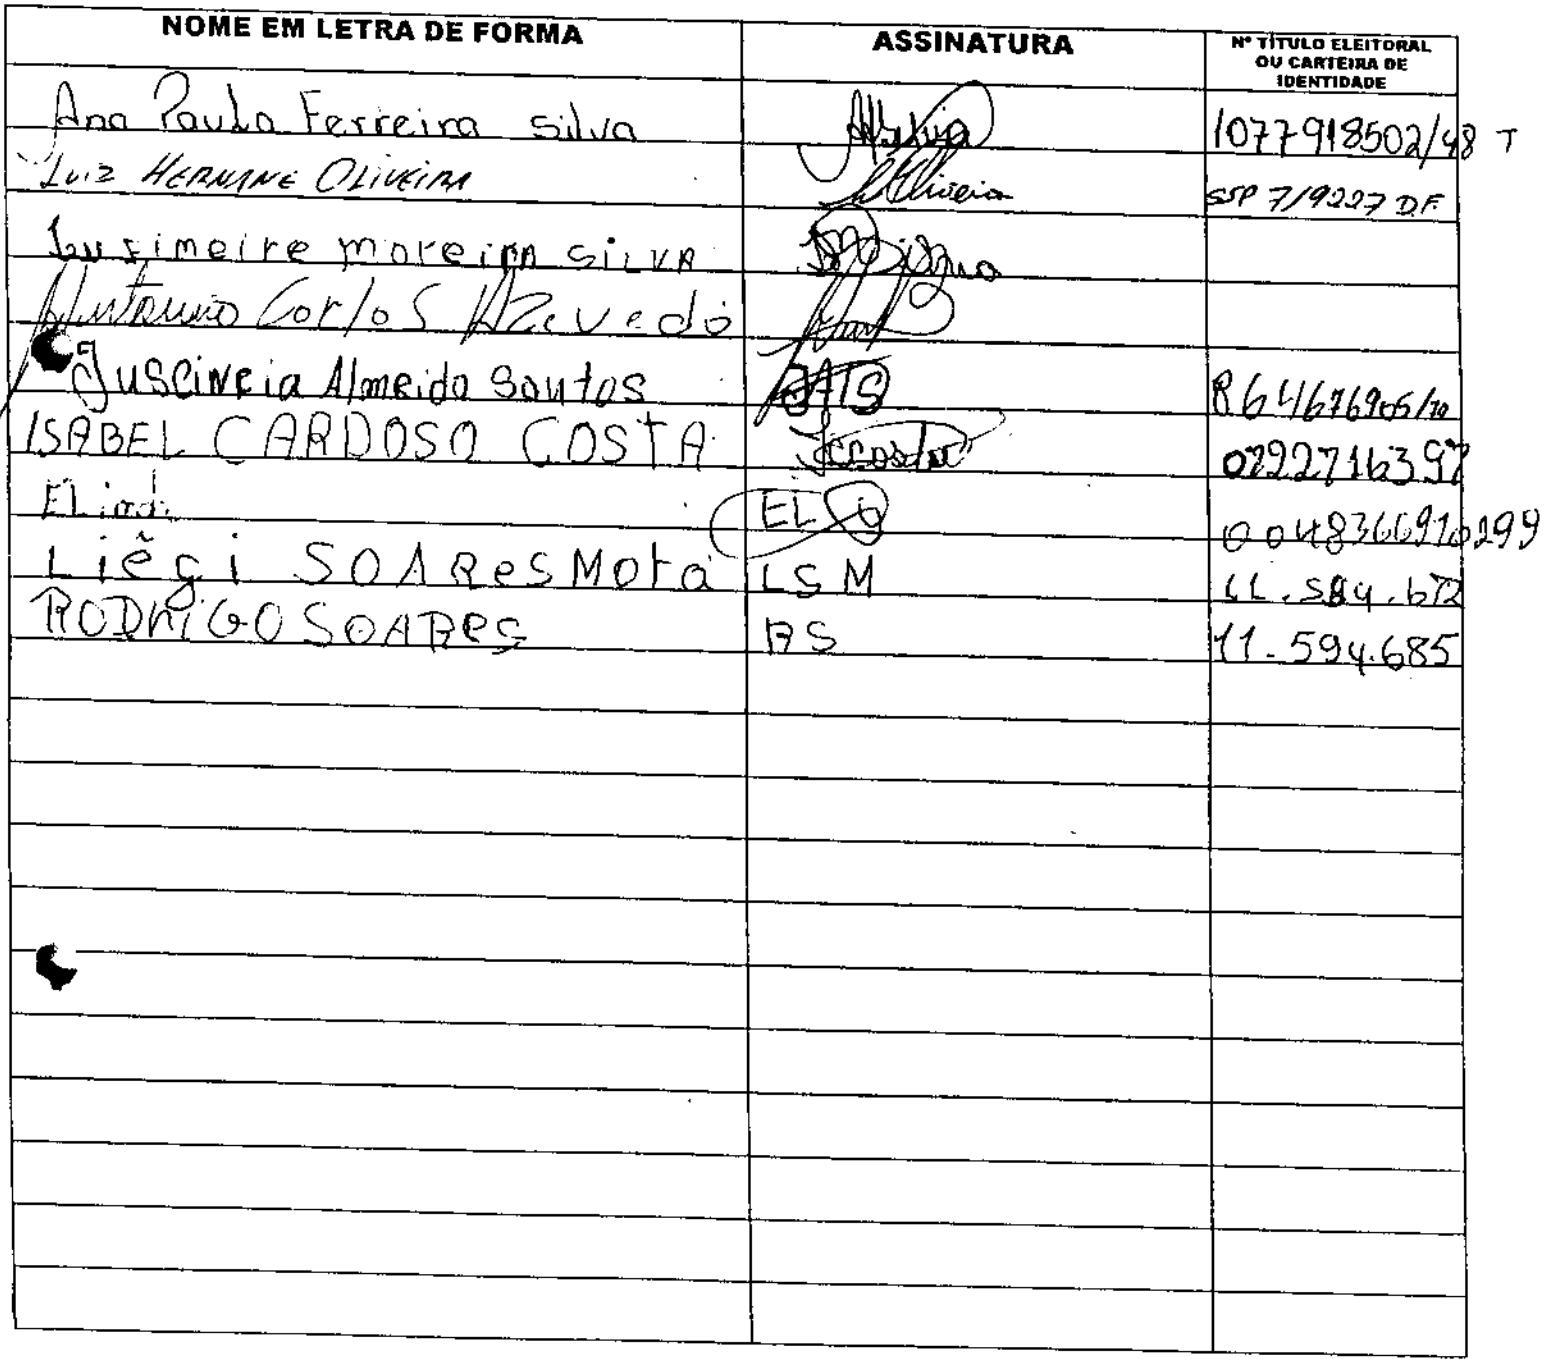 NOME EM LETRA DE FORMA ASSINATURA Nº TÍTULO ELEITORAL
OU CARTEIRA DE
IDENTIDADE
Ana Paula Ferreira Silva 1077918502/48 T
Luiz HERNANE OLIVEIRA Oliveira SSP 719227 DF
Lusimeire moreira SILVA
Antonio Carlos Azevedo
Juscineia Almeida Santos JAS 864676905/70
ISABEL CARDOSO COSTA Iccosta
EL 0048366910299
Liêgi SOARes Mota LSM 11.594.672
RODRIGO SOARES RS 11.594.685